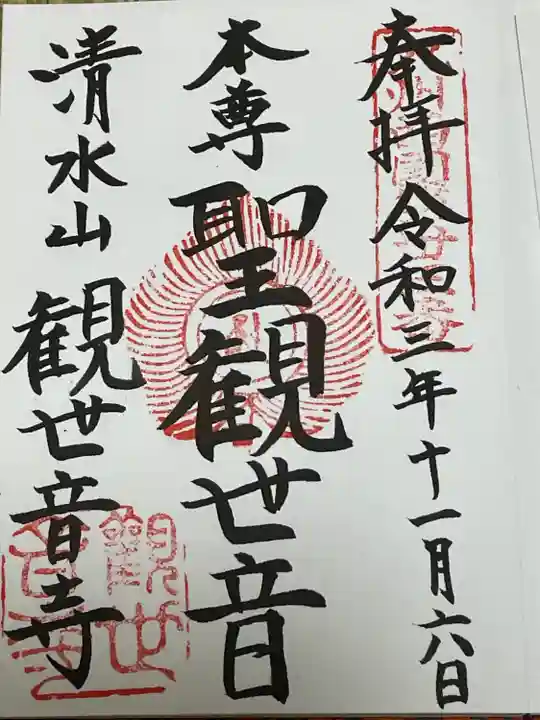 奉拝 令和三年十一月六日
本尊 聖観世音
清水山 観世音寺
觀世音寺